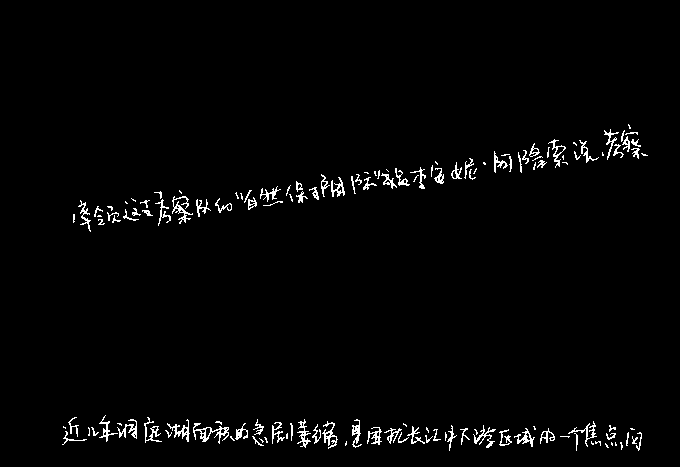 率领这支考察队的“自然保护国际”成员李安妮·阿隆索说，考察
近几年洞庭湖面积的急剧萎缩，是困扰长江中下游区域的一个焦点问